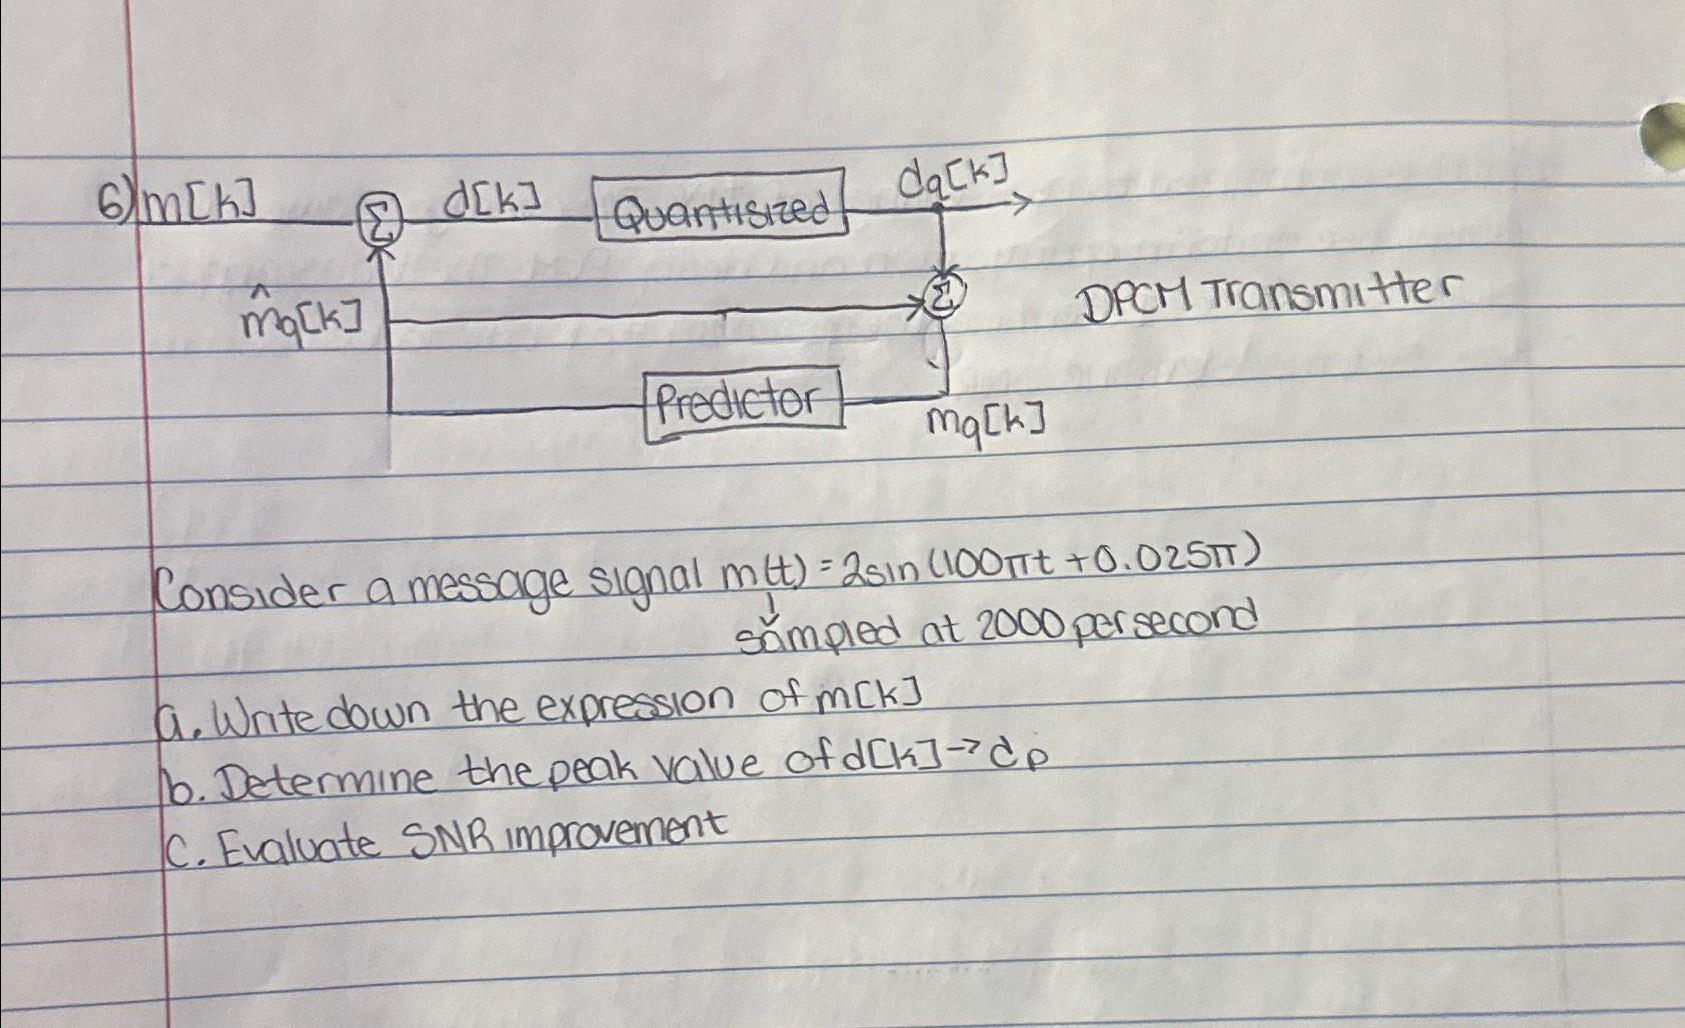 6) m[k] Σ d[k] Quantisized dq[k]
m̂q[k] Σ DPCM Transmitter
Predictor mq[k]
Consider a message signal m(t) = 2sin(100πt + 0.025π)
sampled at 2000 per second
a. Write down the expression of m[k]
b. Determine the peak value of d[k] → dp
C. Evaluate SNR improvement